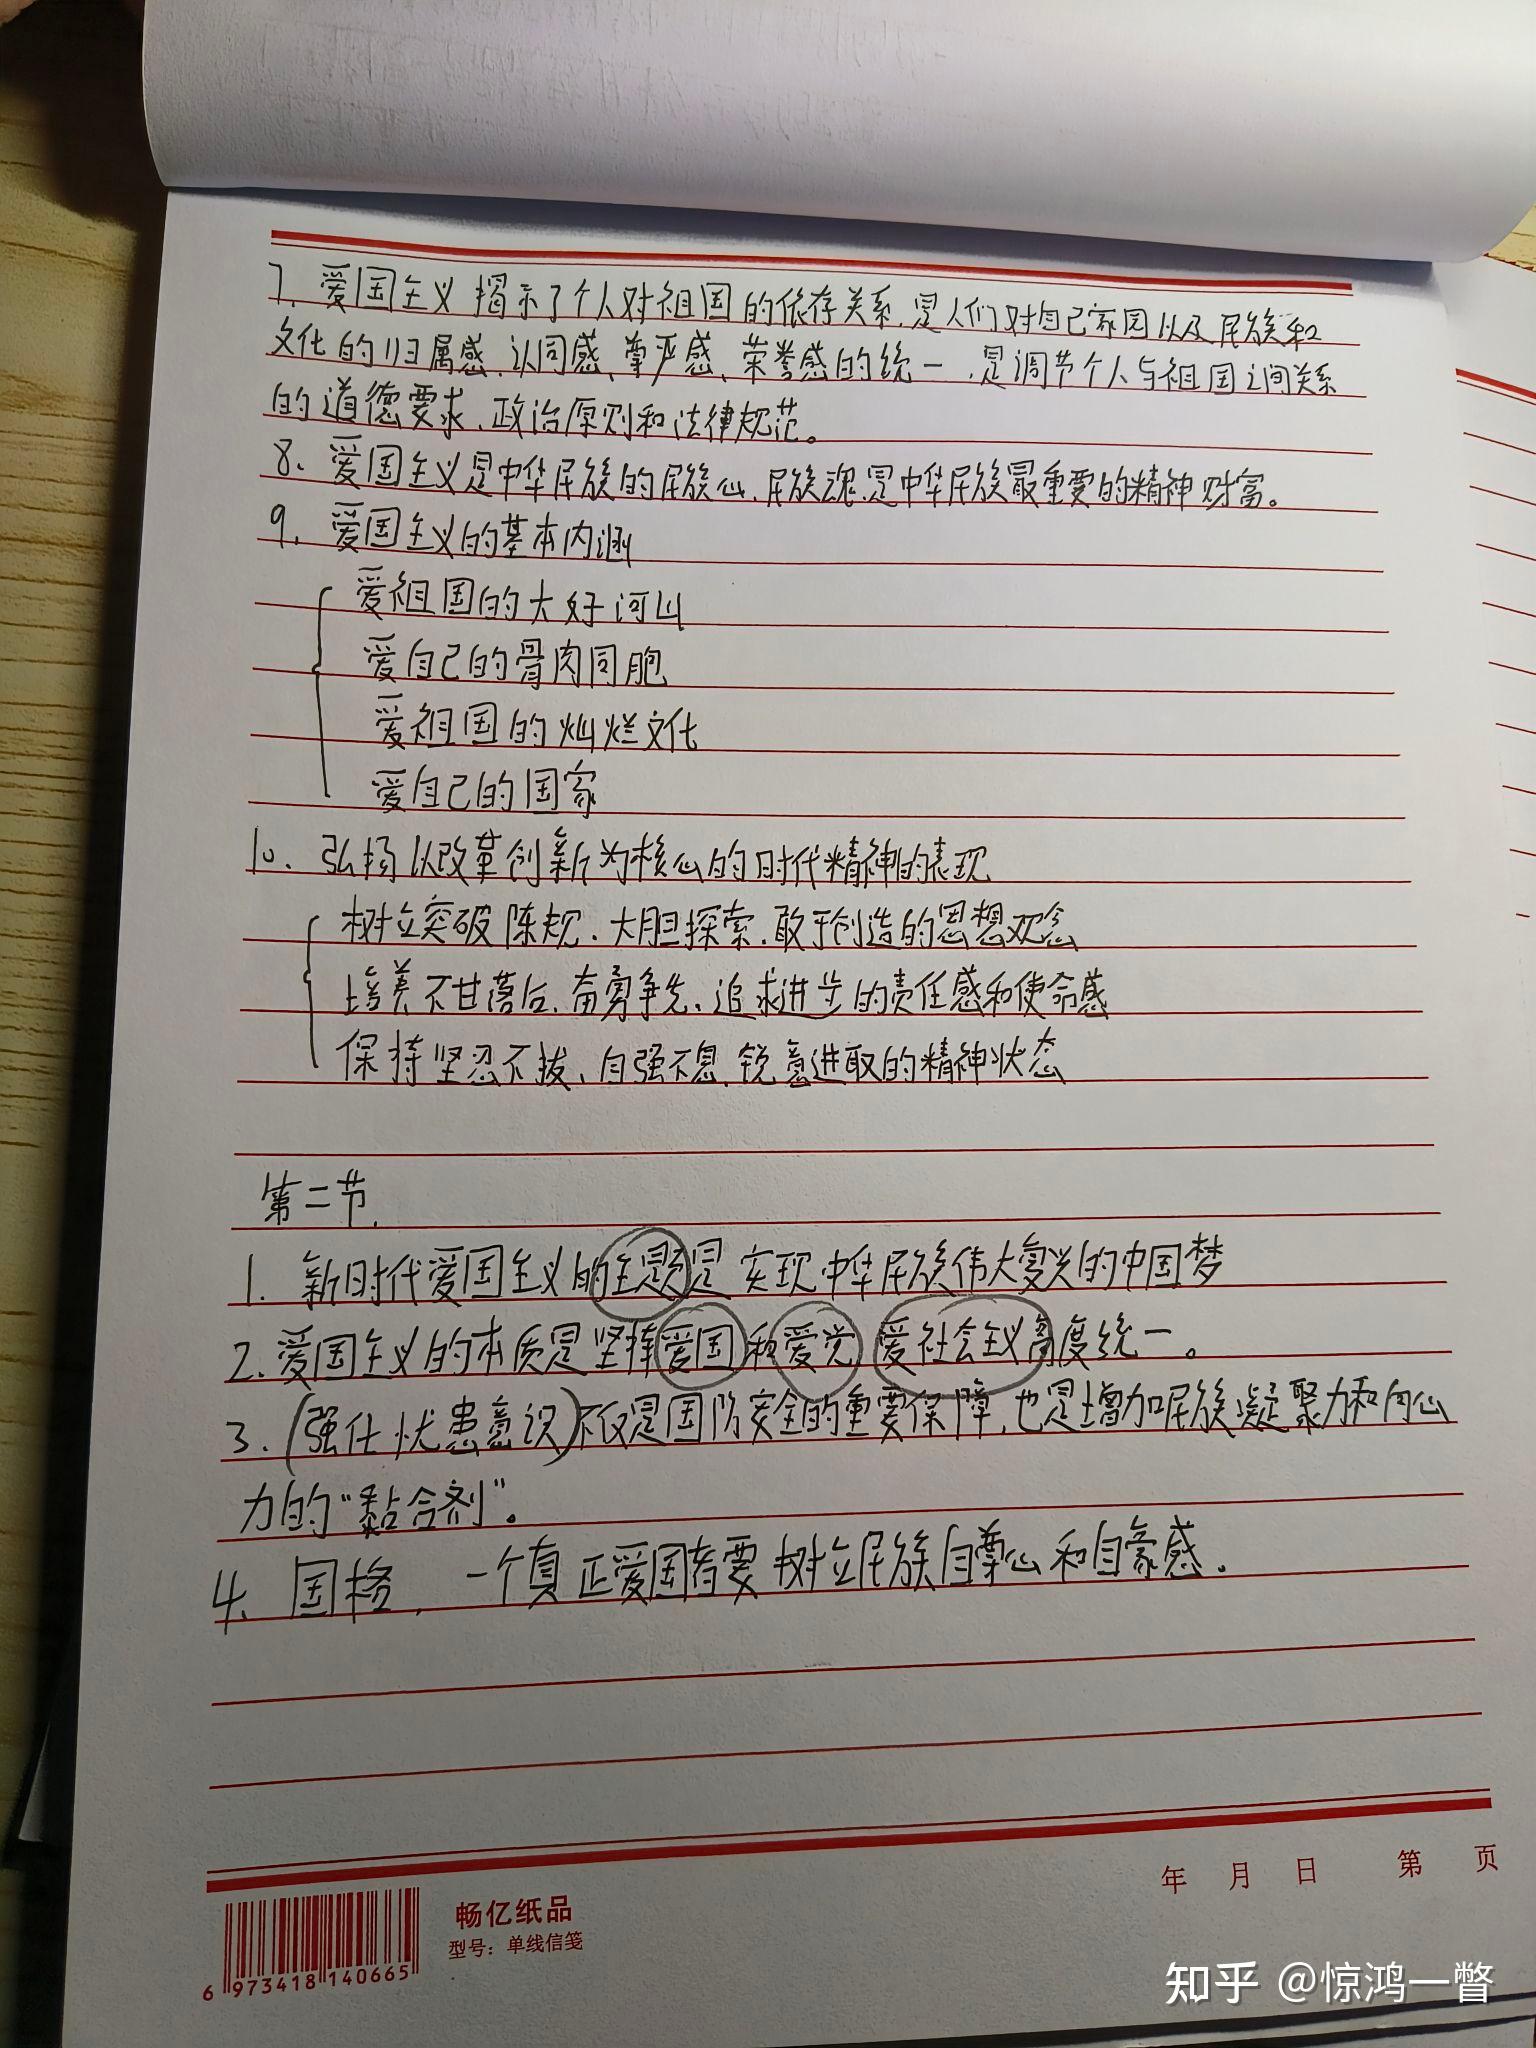 7、爱国主义揭示了个人对祖国的依存关系、是人们对自己家园以及民族和
文化的归属感、认同感、尊严感、荣誉感的统一、是调节个人与祖国之间关系
的道德要求、政治原则和法律规范。
8、爱国主义是中华民族的民族心、民族魂、是中华民族最重要的精神财富。
9、爱国主义的基本内涵
爱祖国的大好河山
爱自己的骨肉同胞
爱祖国的灿烂文化
爱自己的国家
10、弘扬以改革创新为核心的时代精神的表现
树立突破陈规、大胆探索、敢于创造的思想观念
培养不甘落后、奋勇争先、追求进步的责任感和使命感
保持坚忍不拔、自强不息、锐意进取的精神状态
第二节、
1、新时代爱国主义的主题是实现中华民族伟大复兴的中国梦
2、爱国主义的本质是坚持爱国和爱党、爱社会主义高度统一。
3、(强化忧患意识)不仅是国防安全的重要保障、也是增加民族凝聚力和向心
力的“黏合剂”。
4、国格、一个真正爱国者要树立民族自尊心和自豪感。
年 月 日 第 页
畅亿纸品
型号：单线信笺
6 973418 140665
知乎 @惊鸿一瞥